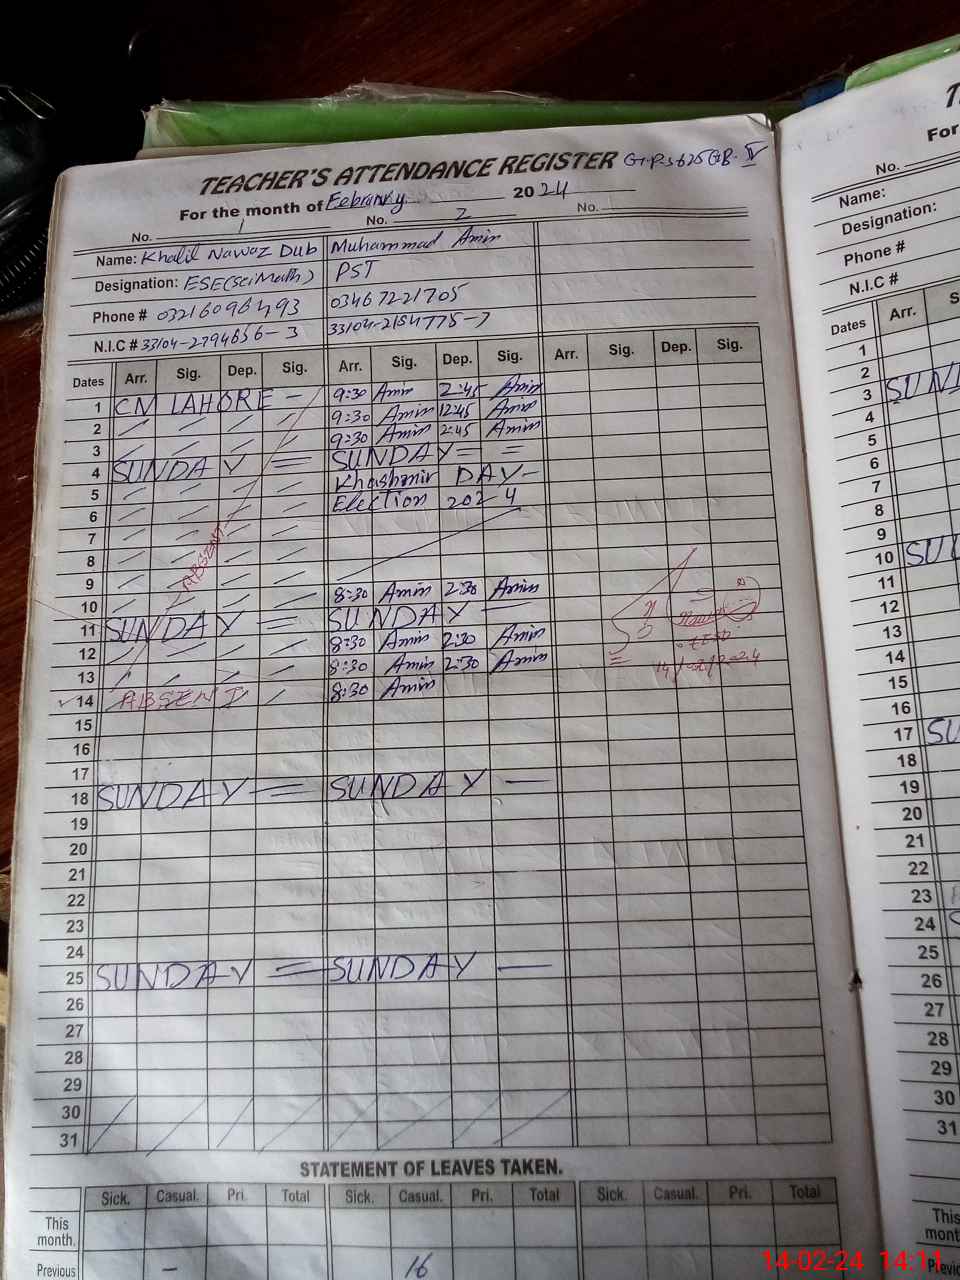 TEACHER'S ATTENDANCE REGISTER G.P.S 625 GB-IV
For the month of Febraury 2024
No. 1 No. 2 No.
Name: Khalil Nawaz Dub Muhammad Amin
Designation: ESE(Sci Math) PST
Phone # 03467221705
N.I.C #
Dates Arr. Sig. Dep. Sig. Arr. Sig. Dep. Sig. Arr. Sig. Dep. Sig.
1 CN LAHORE - 9:30 Amin 2:45 Amin
2 9:30 Amin 12:45 Amin
3 9:30 Amin 2:45 Amin
4 SUNDAY = SUNDAY = =
5 Khashmir DAY -
6 Election 2024
7
8 ABSENT
9
10 8:30 Amin 2:30 Amin
11 SUNDAY = SUNDAY —
12 8:30 Amin 2:30 Amin
13 8:30 Amin 2:30 Amin
14 ABSENT 8:30 Amin
14/02/2024
15
16
17
18 SUNDAY = SUNDAY —
19
20
21
22
23
24
25 SUNDAY = SUNDAY —
26
27
28
29
30
31
STATEMENT OF LEAVES TAKEN.
Sick. Casual. Pri. Total Sick. Casual. Pri. Total Sick. Casual. Pri. Total
This month.
Previous - 16
T
For
No.
Name:
Designation:
Phone #
N.I.C #
Dates Arr. S
1
2
3 SUN
4
5
6
7
8
9
10 SU
11
12
13
14
15
16
17 SU
18
19
20
21
22
23
24
25
26
27
28
29
30
31
This
mont
Previ
14-02-24 14:11